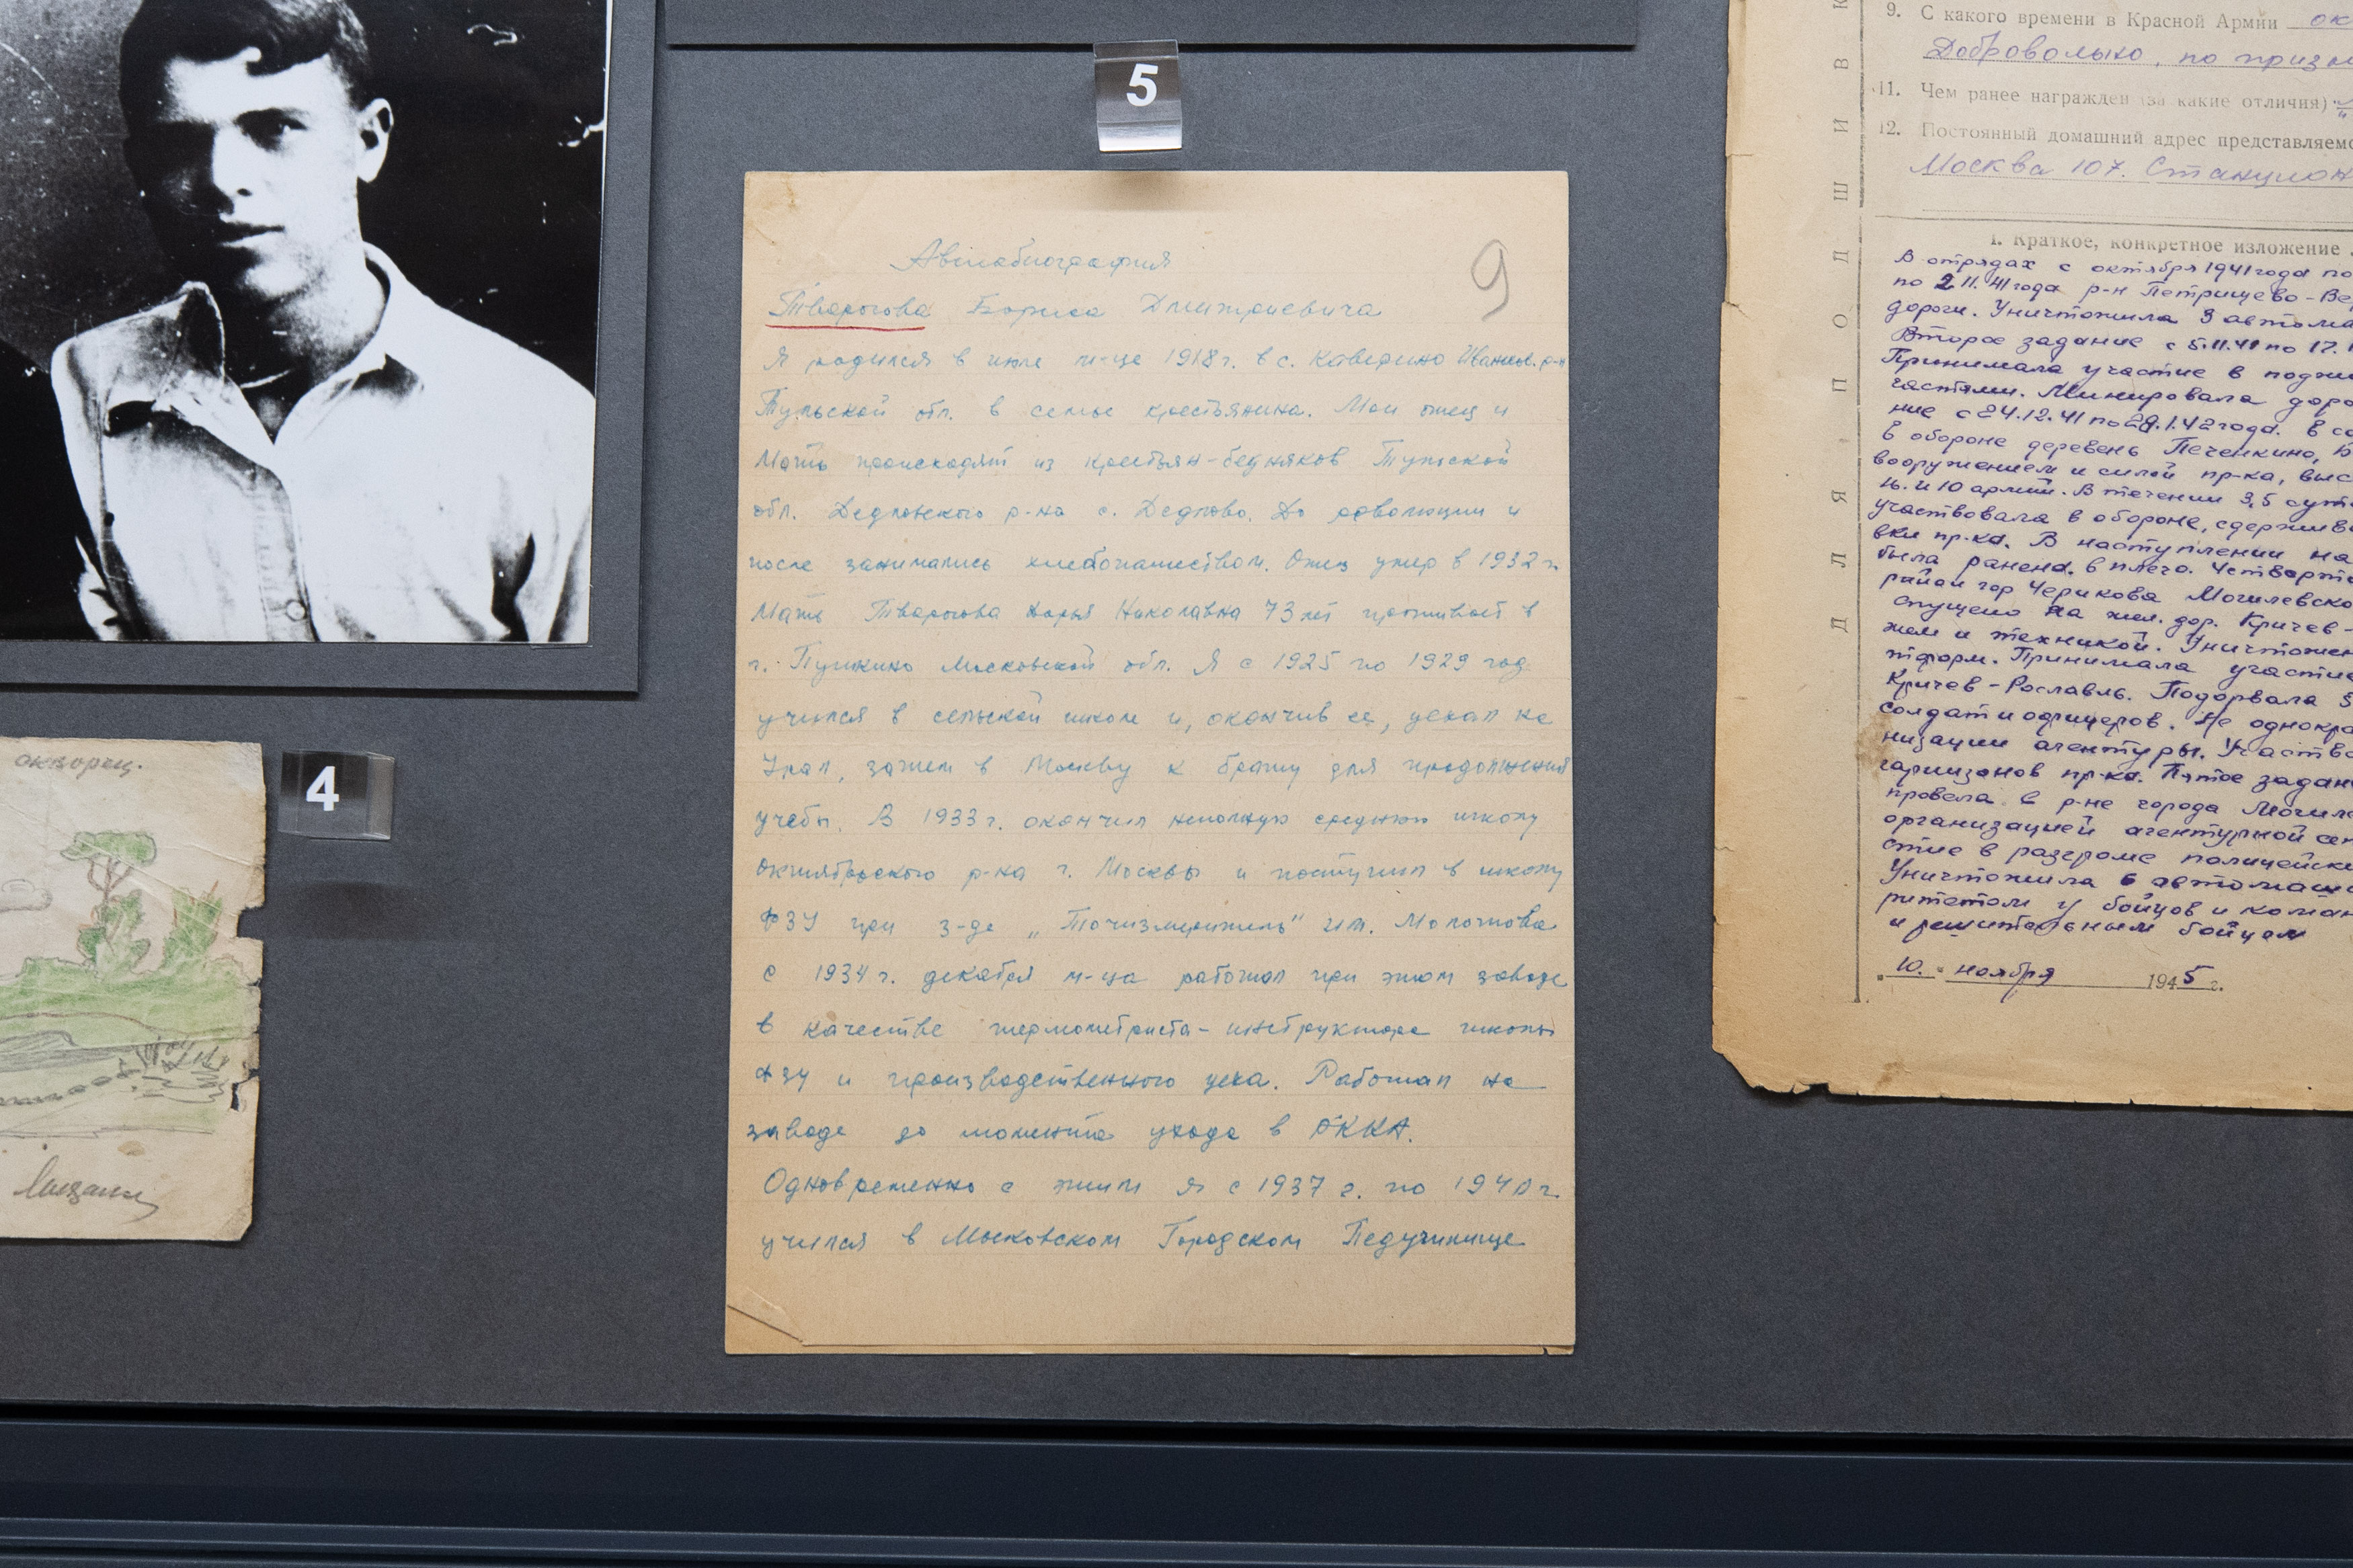 5
Автобиография
9
Тварогова Бориса Дмитриевича
Я родился в июле м-це 1918 г. в с. Каверино Иваньк. р-н
Тульской обл. в семье крестьянина. Мои отец и
Мать происходят из крестьян-бедняков Тульской
обл. Дедловского р-на с. Дедлово. До революции и
после занимались хлебопашеством. Отец умер в 1932 г.
Мать Тварогова Дарья Николавна 73 лет проживает в
г. Пушкино Московской обл. Я с 1925 по 1929 год
учился в сельской школе и, окончив ее, уехал на
Урал, затем в Москву к брату для продолжения
учебы. В 1933 г. окончил неполную среднюю школу
Октябрьского р-на г. Москвы и поступил в школу
ФЗУ при з-де „Точизмеритель" им. Молотова
С 1934 г. декабря м-ца работал при этом заводе
в качестве термометриста-инструктора школы
ФЗУ и производственного цеха. Работал на
заводе до момента ухода в РККА.
Одновременно с этим я с 1937 г. по 1940 г.
учился в Московском Городском Педучилище
4
окворец.
9. С какого времени в Красной Армии ок
Добровольно, по призы
11. Чем ранее награжден (за какие отличия)
12. Постоянный домашний адрес представляемо
Москва 107. Станцион
I. Краткое, конкретное изложение
В отрядах с октября 1941 года по
по 2.11.41 года р-н Петрищево-Ве
дороги. Уничтожила 3 автома
Второе задание с 5.11.41 по 17.
Принимала участие в поджи
частями. Минировала доро
ние с 24.12.41 по 28.1.42 года. В со
в обороне деревень Печенкино, Б
вооружением и силой пр-ка, выс
ц. и 10 армий. В течении 3,5 сут
участвовала в обороне, сдержив
вки пр-ка. В наступлении на
была ранена в плечо. Четверт
район гор Черикова Могилевско
спущено на жел. дор. Кричев-
жем и техникой. Уничтожен
тформ. Принимала участие
Кричев-Рославль. Подорвала 3
солдат и офицеров. Не однокра
низации агентуры. Участво
гарнизонов пр-ка. Пятое задан
провела в р-не города Могиле
организацией агентурной се
стие в разгроме полицейск
Уничтожила 6 автомаш
ритетом у бойцов и коман
и решительным бойцом
„10." ноября 1945 г.
ДЛЯ ПОДШИВК